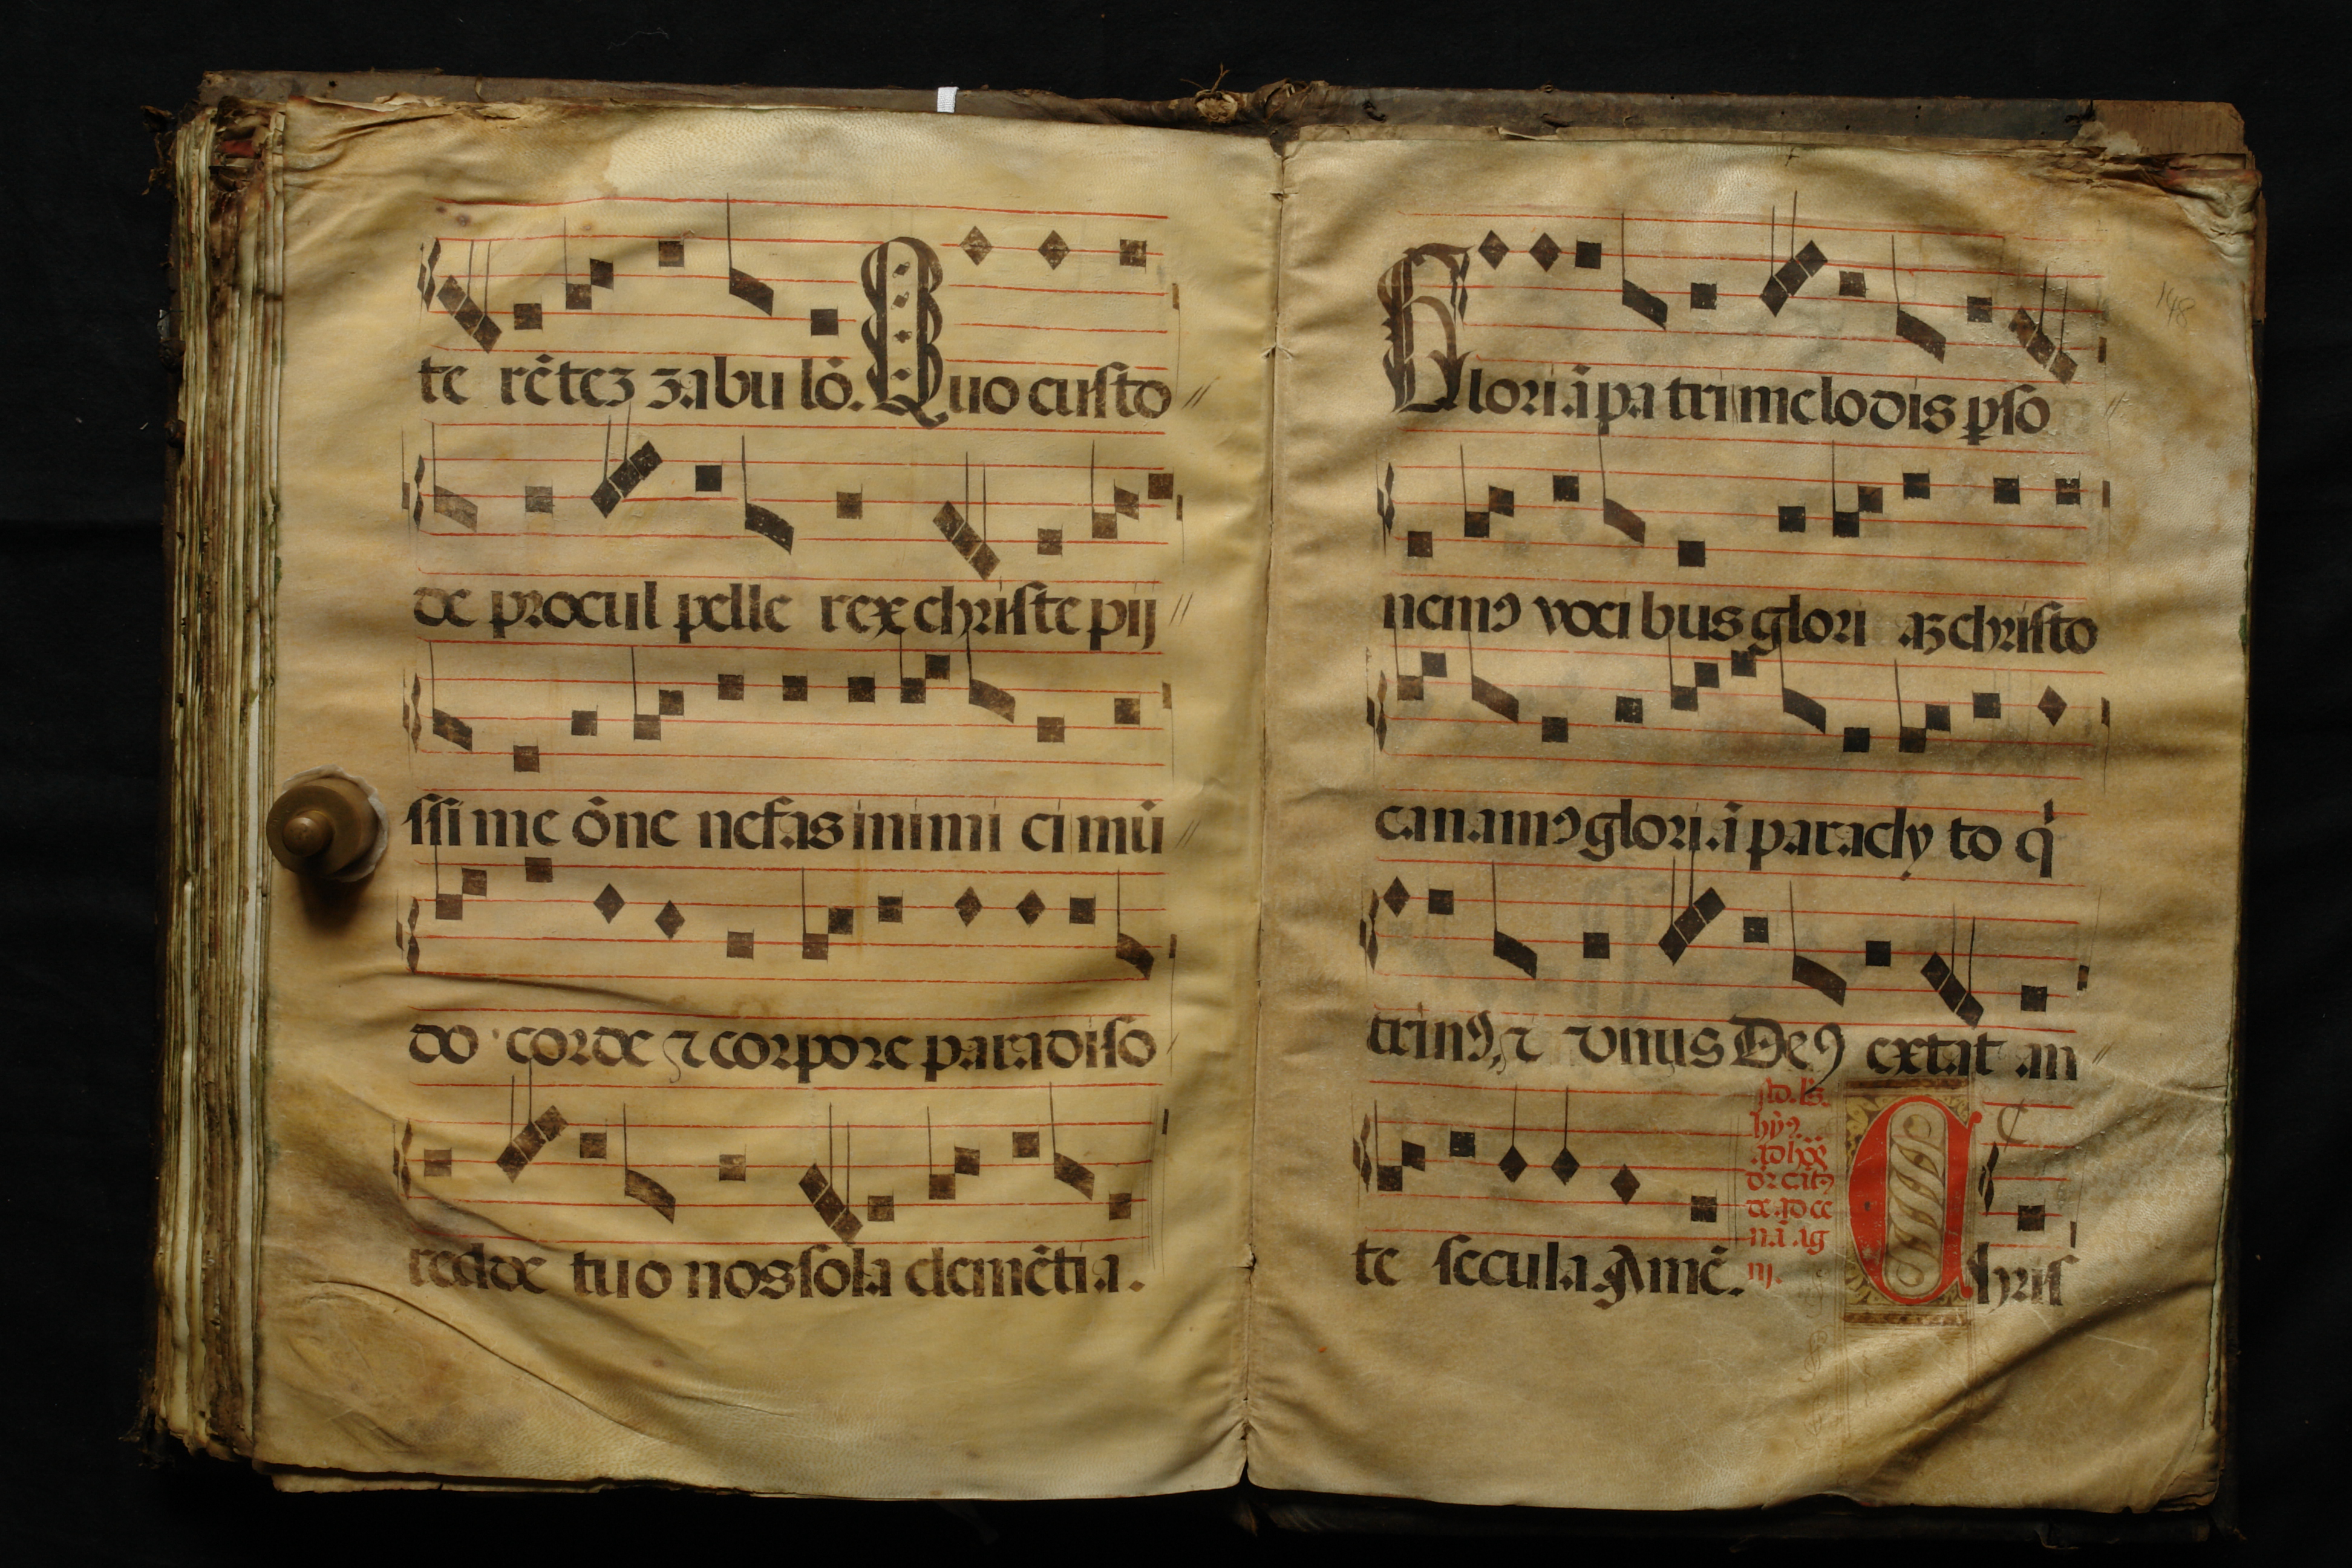 te rēteʒ ʒabu lō. Quo custo //
de procul pelle rex christe pij //
ssi me ōne nefas inimi ci mū //
do corde ⁊ corpore paradiso
redde tuo nos sola clemētia.
148
Gloriā pa tri melodis ꝑso //
nemꝯ voci bus glori aʒ christo
canamꝯ gloriā paracly to q
trinꝯ, ⁊ vnus Deꝯ extat an //
te secula Amē. Chris